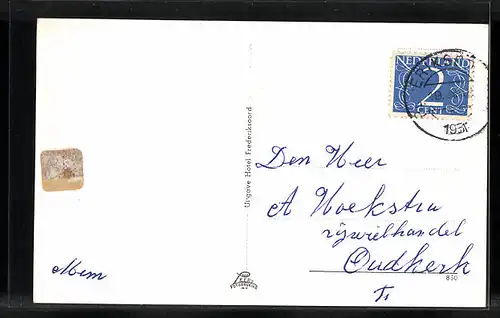 NEDERLAND
2
CENT
195
Uitgave Hotel Frederiksoord
Den Heer
A Hoekstra
rijwielhandel
Oudkerk
Mem
FOTOGRAVURE
850